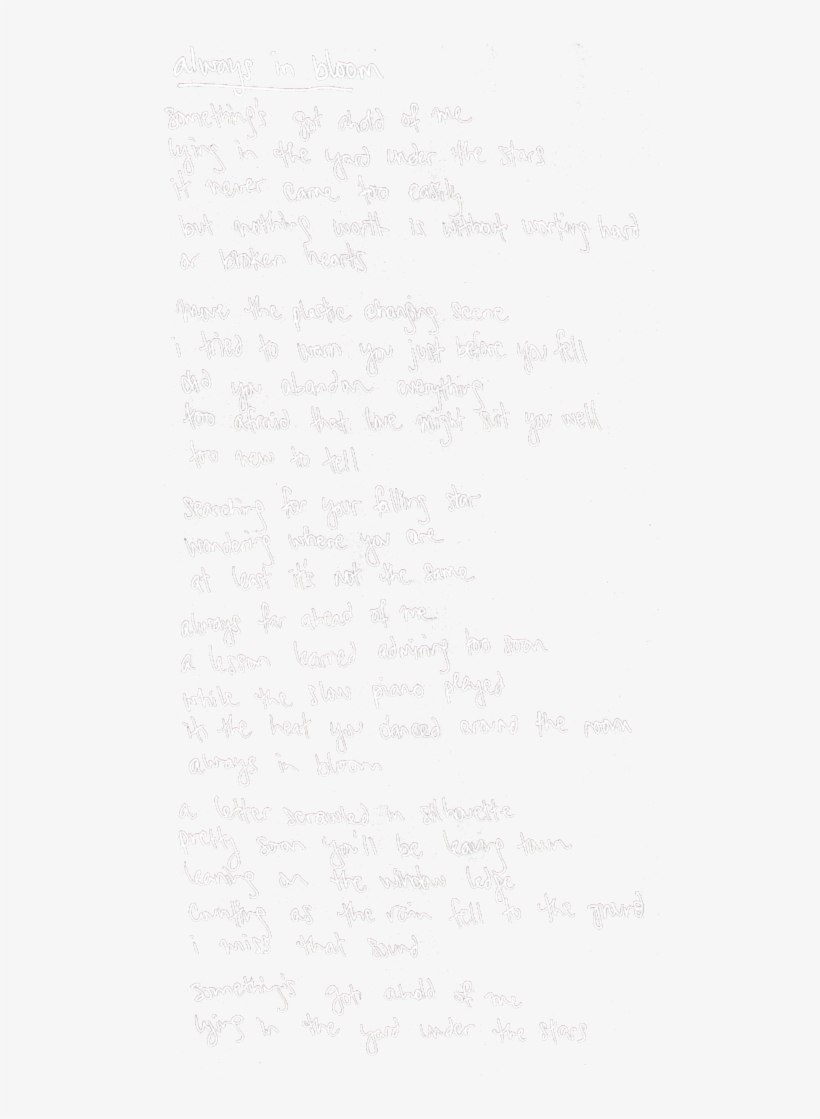 always in bloom
something's got ahold of me
lying in the yard under the stars
it never came too easily
but nothing worth is without working hard
or broken hearts
the plastic changing scene
i tried to warn you just before you fell
did you abandon everything
too afraid that love might suit you well
too new to tell
searching for your falling star
wondering where you are
at least it's not the same
always far ahead of me
a lesson learned admiring too soon
while the slow piano played
in the heat you danced around the room
always in bloom
a letter scrawled in silhouette
pretty soon you'll be leaving town
leaning on the window ledge
counting as the rain fell to the ground
i miss that sound
something's got ahold of me
lying in the yard under the stars